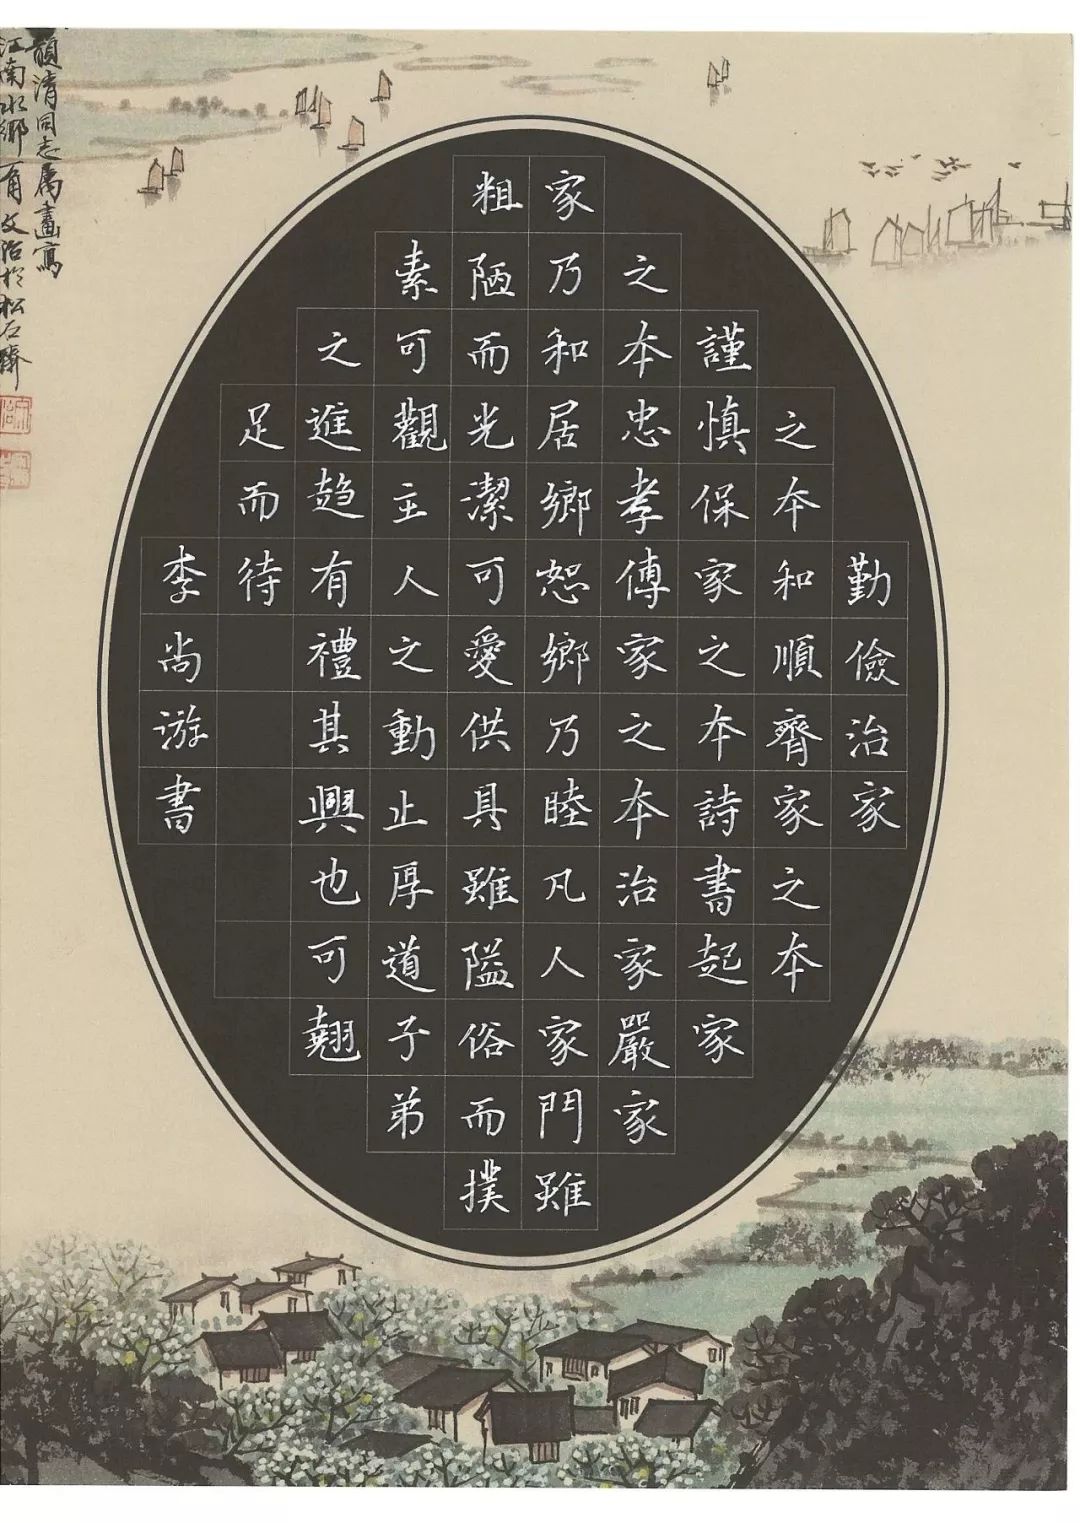 勤儉治家
之本和順齊家之本
謹慎保家之本詩書起家
之本忠孝傳家之本治家嚴家
家乃和居鄉恕鄉乃睦凡人家門雖
粗陋而光潔可愛供具雖隘俗而撲
素可觀主人之動止厚道子弟
之進趋有禮其興也可翘
足而待
李尚游書
清同志属畫寫
江南水鄉一角文治於松石齋